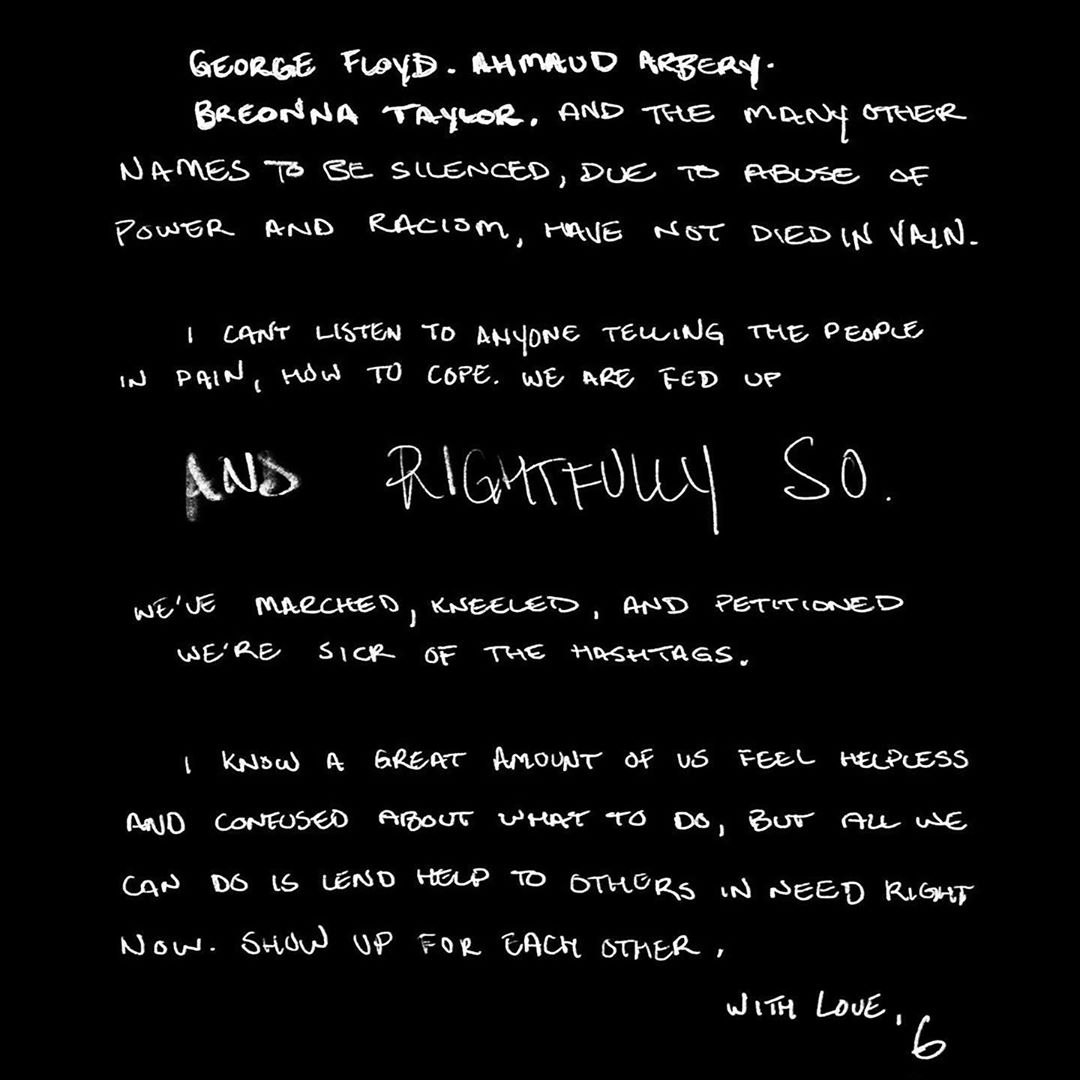 GEORGE FLOYD. AHMAUD ARBERY.
BREONNA TAYLOR. AND THE MANY OTHER
NAMES TO BE SILENCED, DUE TO ABUSE OF
POWER AND RACISM, HAVE NOT DIED IN VAIN.
I CANT LISTEN TO ANYONE TELLING THE PEOPLE
IN PAIN, HOW TO COPE. WE ARE FED UP
AND RIGHTFULLY SO.
WE'VE MARCHED, KNEELED, AND PETITIONED
WE'RE SICK OF THE HASHTAGS.
I KNOW A GREAT AMOUNT OF US FEEL HELPLESS
AND CONFUSED ABOUT WHAT TO DO, BUT ALL WE
CAN DO IS LEND HELP TO OTHERS IN NEED RIGHT
NOW. SHOW UP FOR EACH OTHER,
WITH LOVE,
6